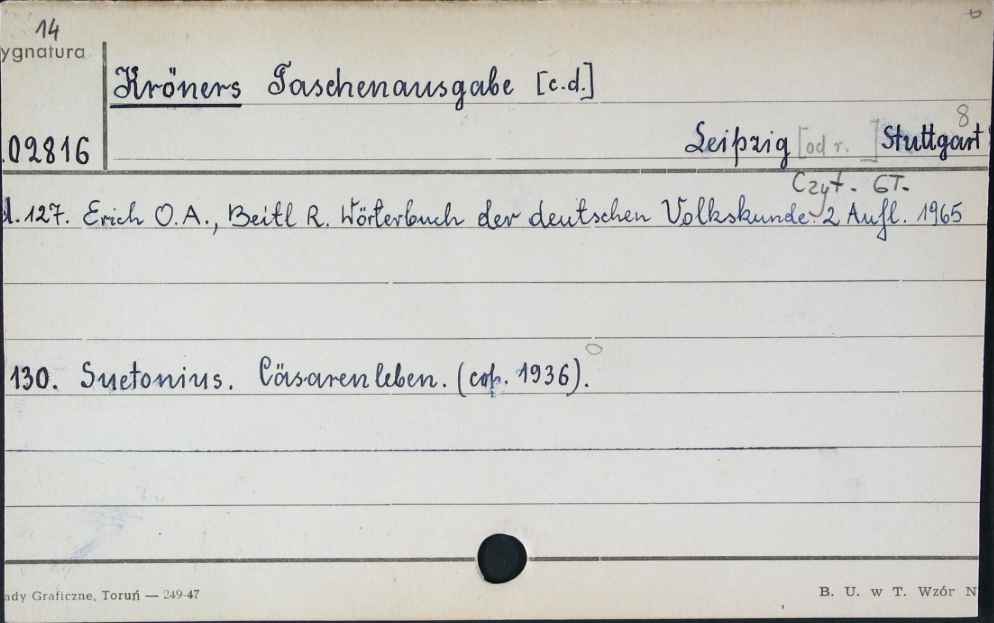 14
ygnatura
Kröners Taschenausgabe [c.d.]
8
02816 Leipzig [od r. ] Stuttgart
Czyt. GT.
d. 127. Erich O.A., Beitl R. Wörterbuch der deutschen Volkskunde. 2 Aufl. 1965
130. Suetonius. Cäsarenleben. (cop. 1936).
ady Graficzne, Toruń — 249-47
B. U. w T. Wzór N